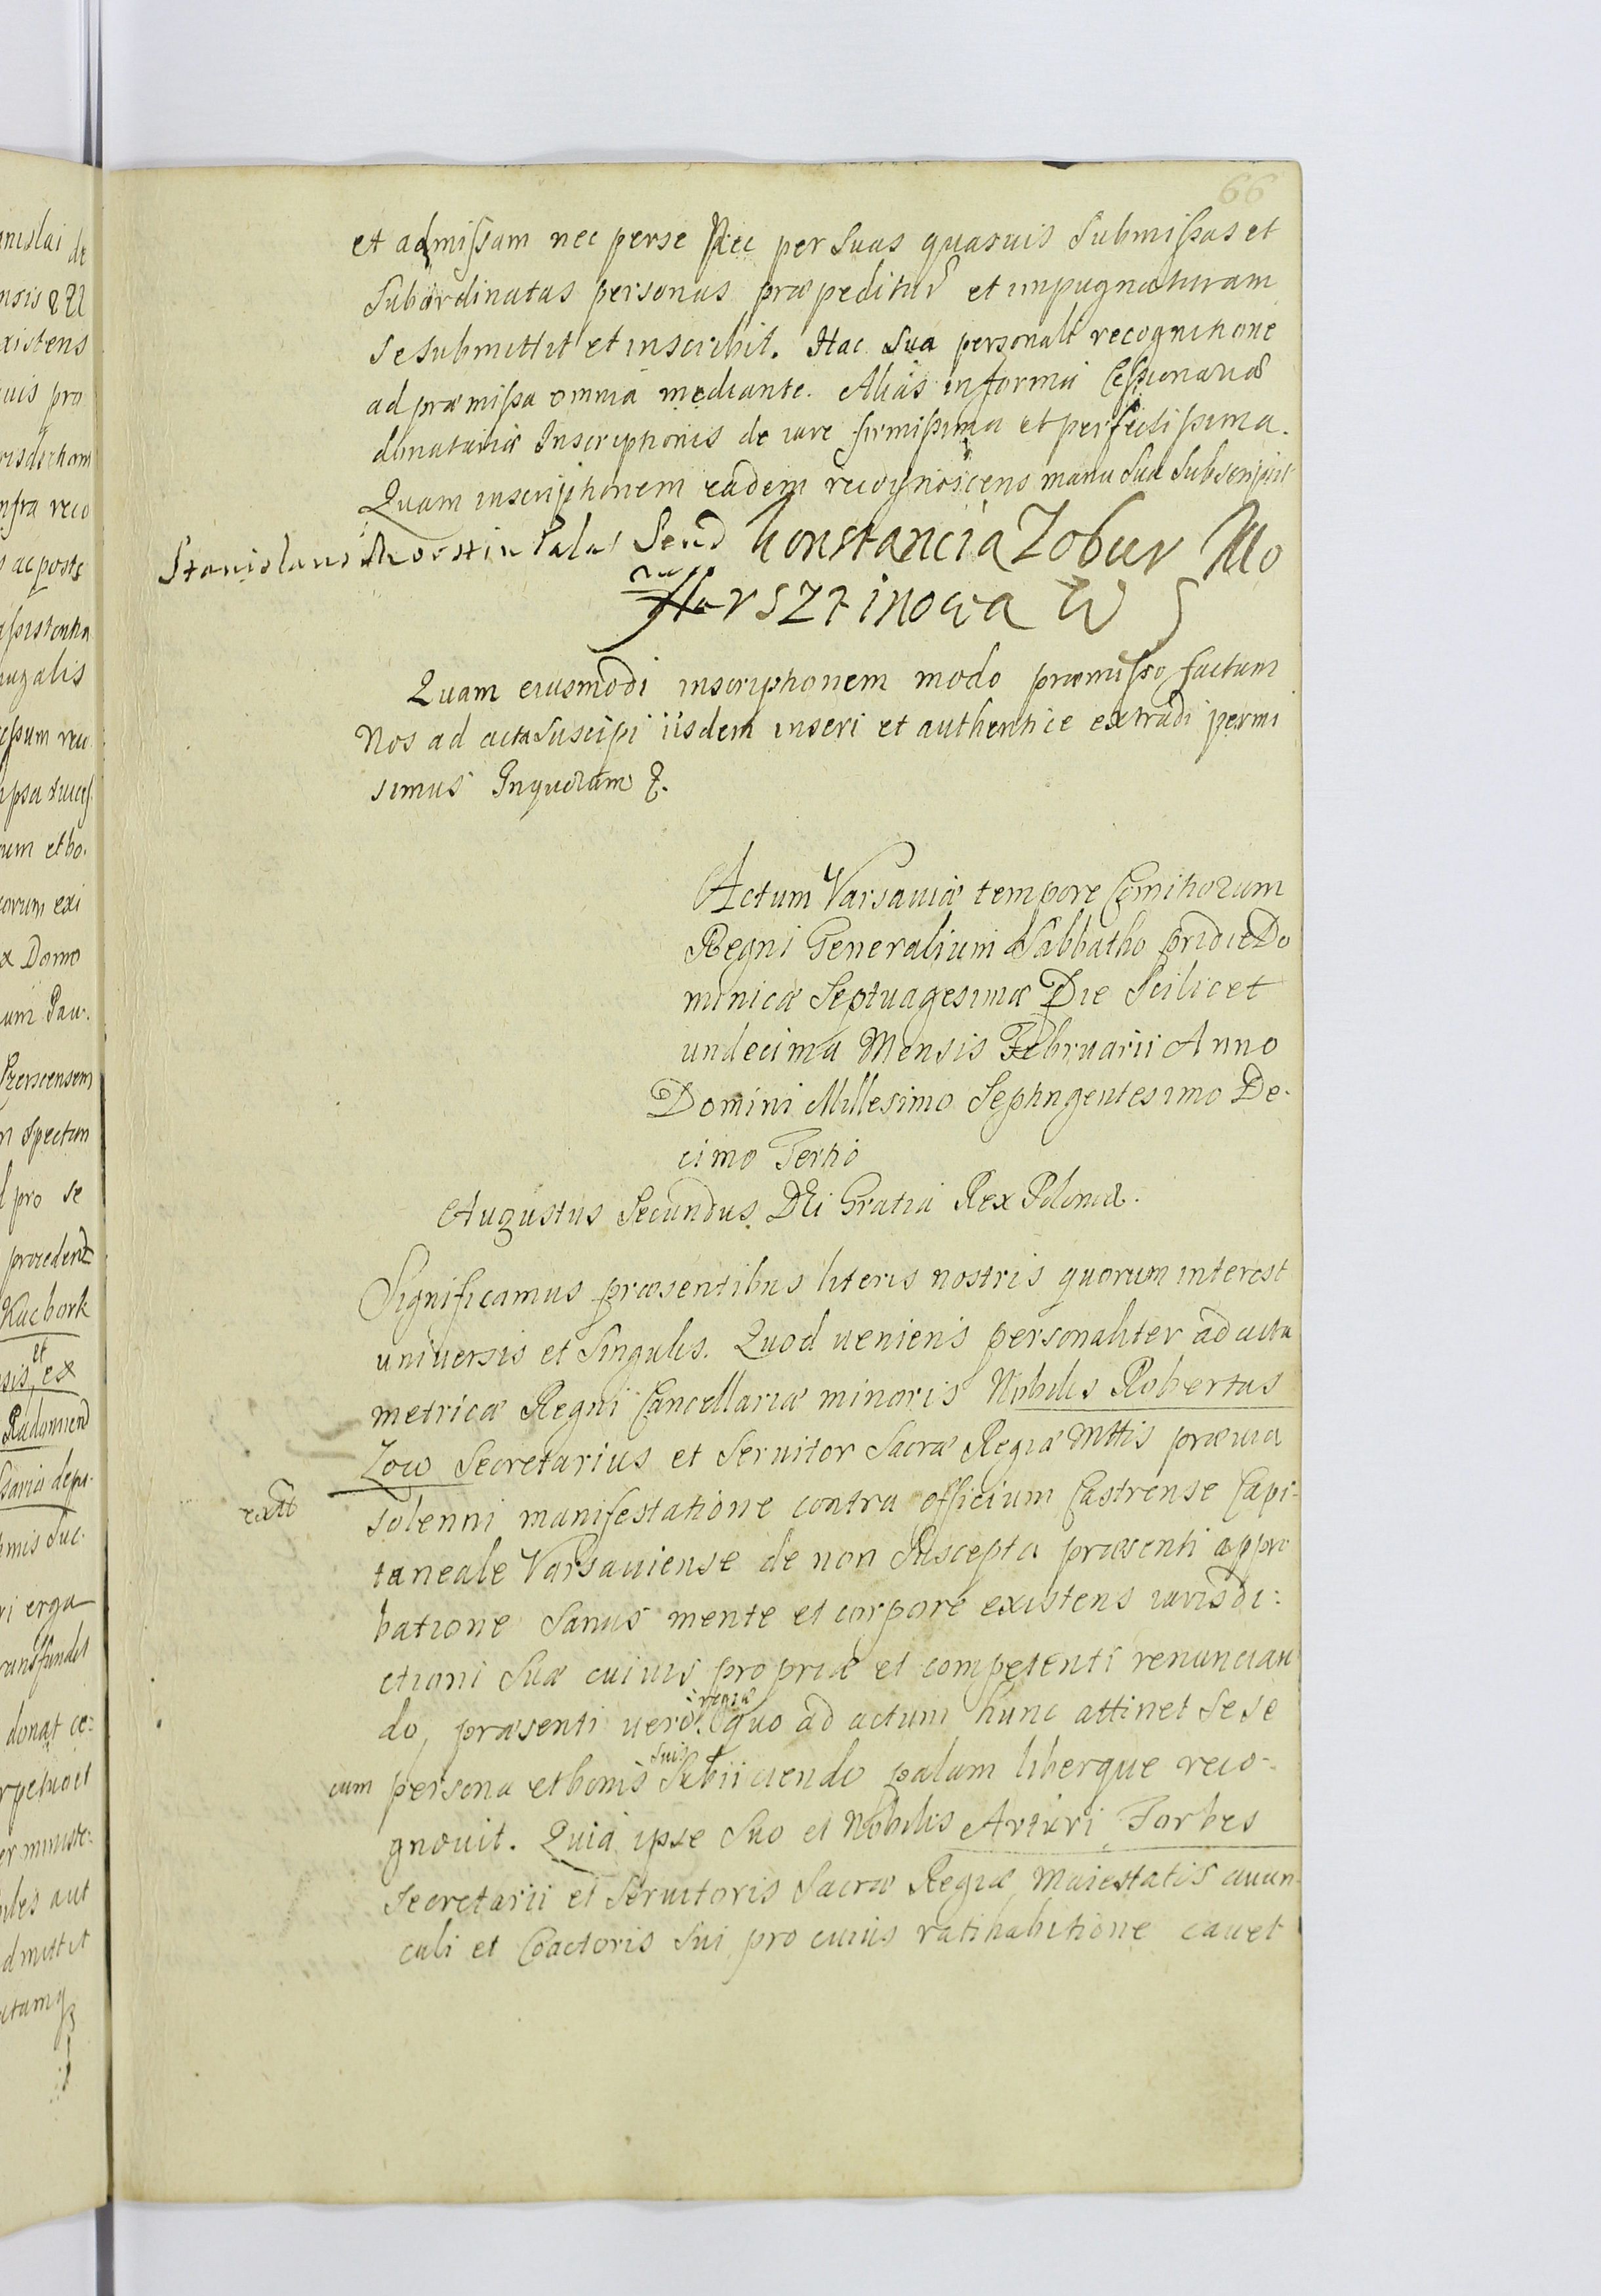 66
et admissam nec perse Nec per Suas quasuis Submissas et
Subordinatas personas præpeditur et impugnaturam
se submittit et inscribit. Hac Sua personali recognitione
ad præmissa omnia mediante. Alias in forma Cessionariæ
donatariæ Inscriptionis de iure firmissima et perfectissima.
Quam inscriptionem eadem recognoscens manu sua Subscripsit
Stanislaus Morstin Palat Send Konstancia Zobur Mo
rsztinowa W S
Quam eiusmodi inscriptionem modo præmisso factam
Nos ad acta Suscipi iisdem inseri et authentice extradi permi
simus Inquorum &.
Actum Varsaviæ tempore Comitiorum
Regni Generalium Sabbatho pridie Do
minicæ Septuagesimæ Die Scilicet
undecima Mensis Februarii Anno
Domini Millesimo Septingentesimo De-
cimo Tertio
Augustus Secundus Dei Gratia Rex Poloniæ.
Significamus præsentibus literis nostris quorum interest
universis et Singulis. Quod veniens personaliter ad acta
metricæ Regni Cancellariæ minoris Nobilis Robertus
Low Secretarius et Servitor Sacræ Regiæ Mttis prævia
extt
solenni manifestatione contra officium Castrense Capi-
taneale Varsaviense de non Suscepta præsenti appro
batione Sanus mente et corpore existens iurisdi:
ctioni Suæ cuiuis propriæ et competenti renuncian
do, præsenti vero regiæ quo ad actum hunc attinet Sese
cum persona et bonis suis Subiiciendo palam libereque reco-
gnovit. Quia ipse Suo et Nobilis Arturi Forbes
Secretarii et Servitoris Sacræ Regiæ Maiestatis avun
culi et Coactoris Sui pro cuius ratihabitione cavet